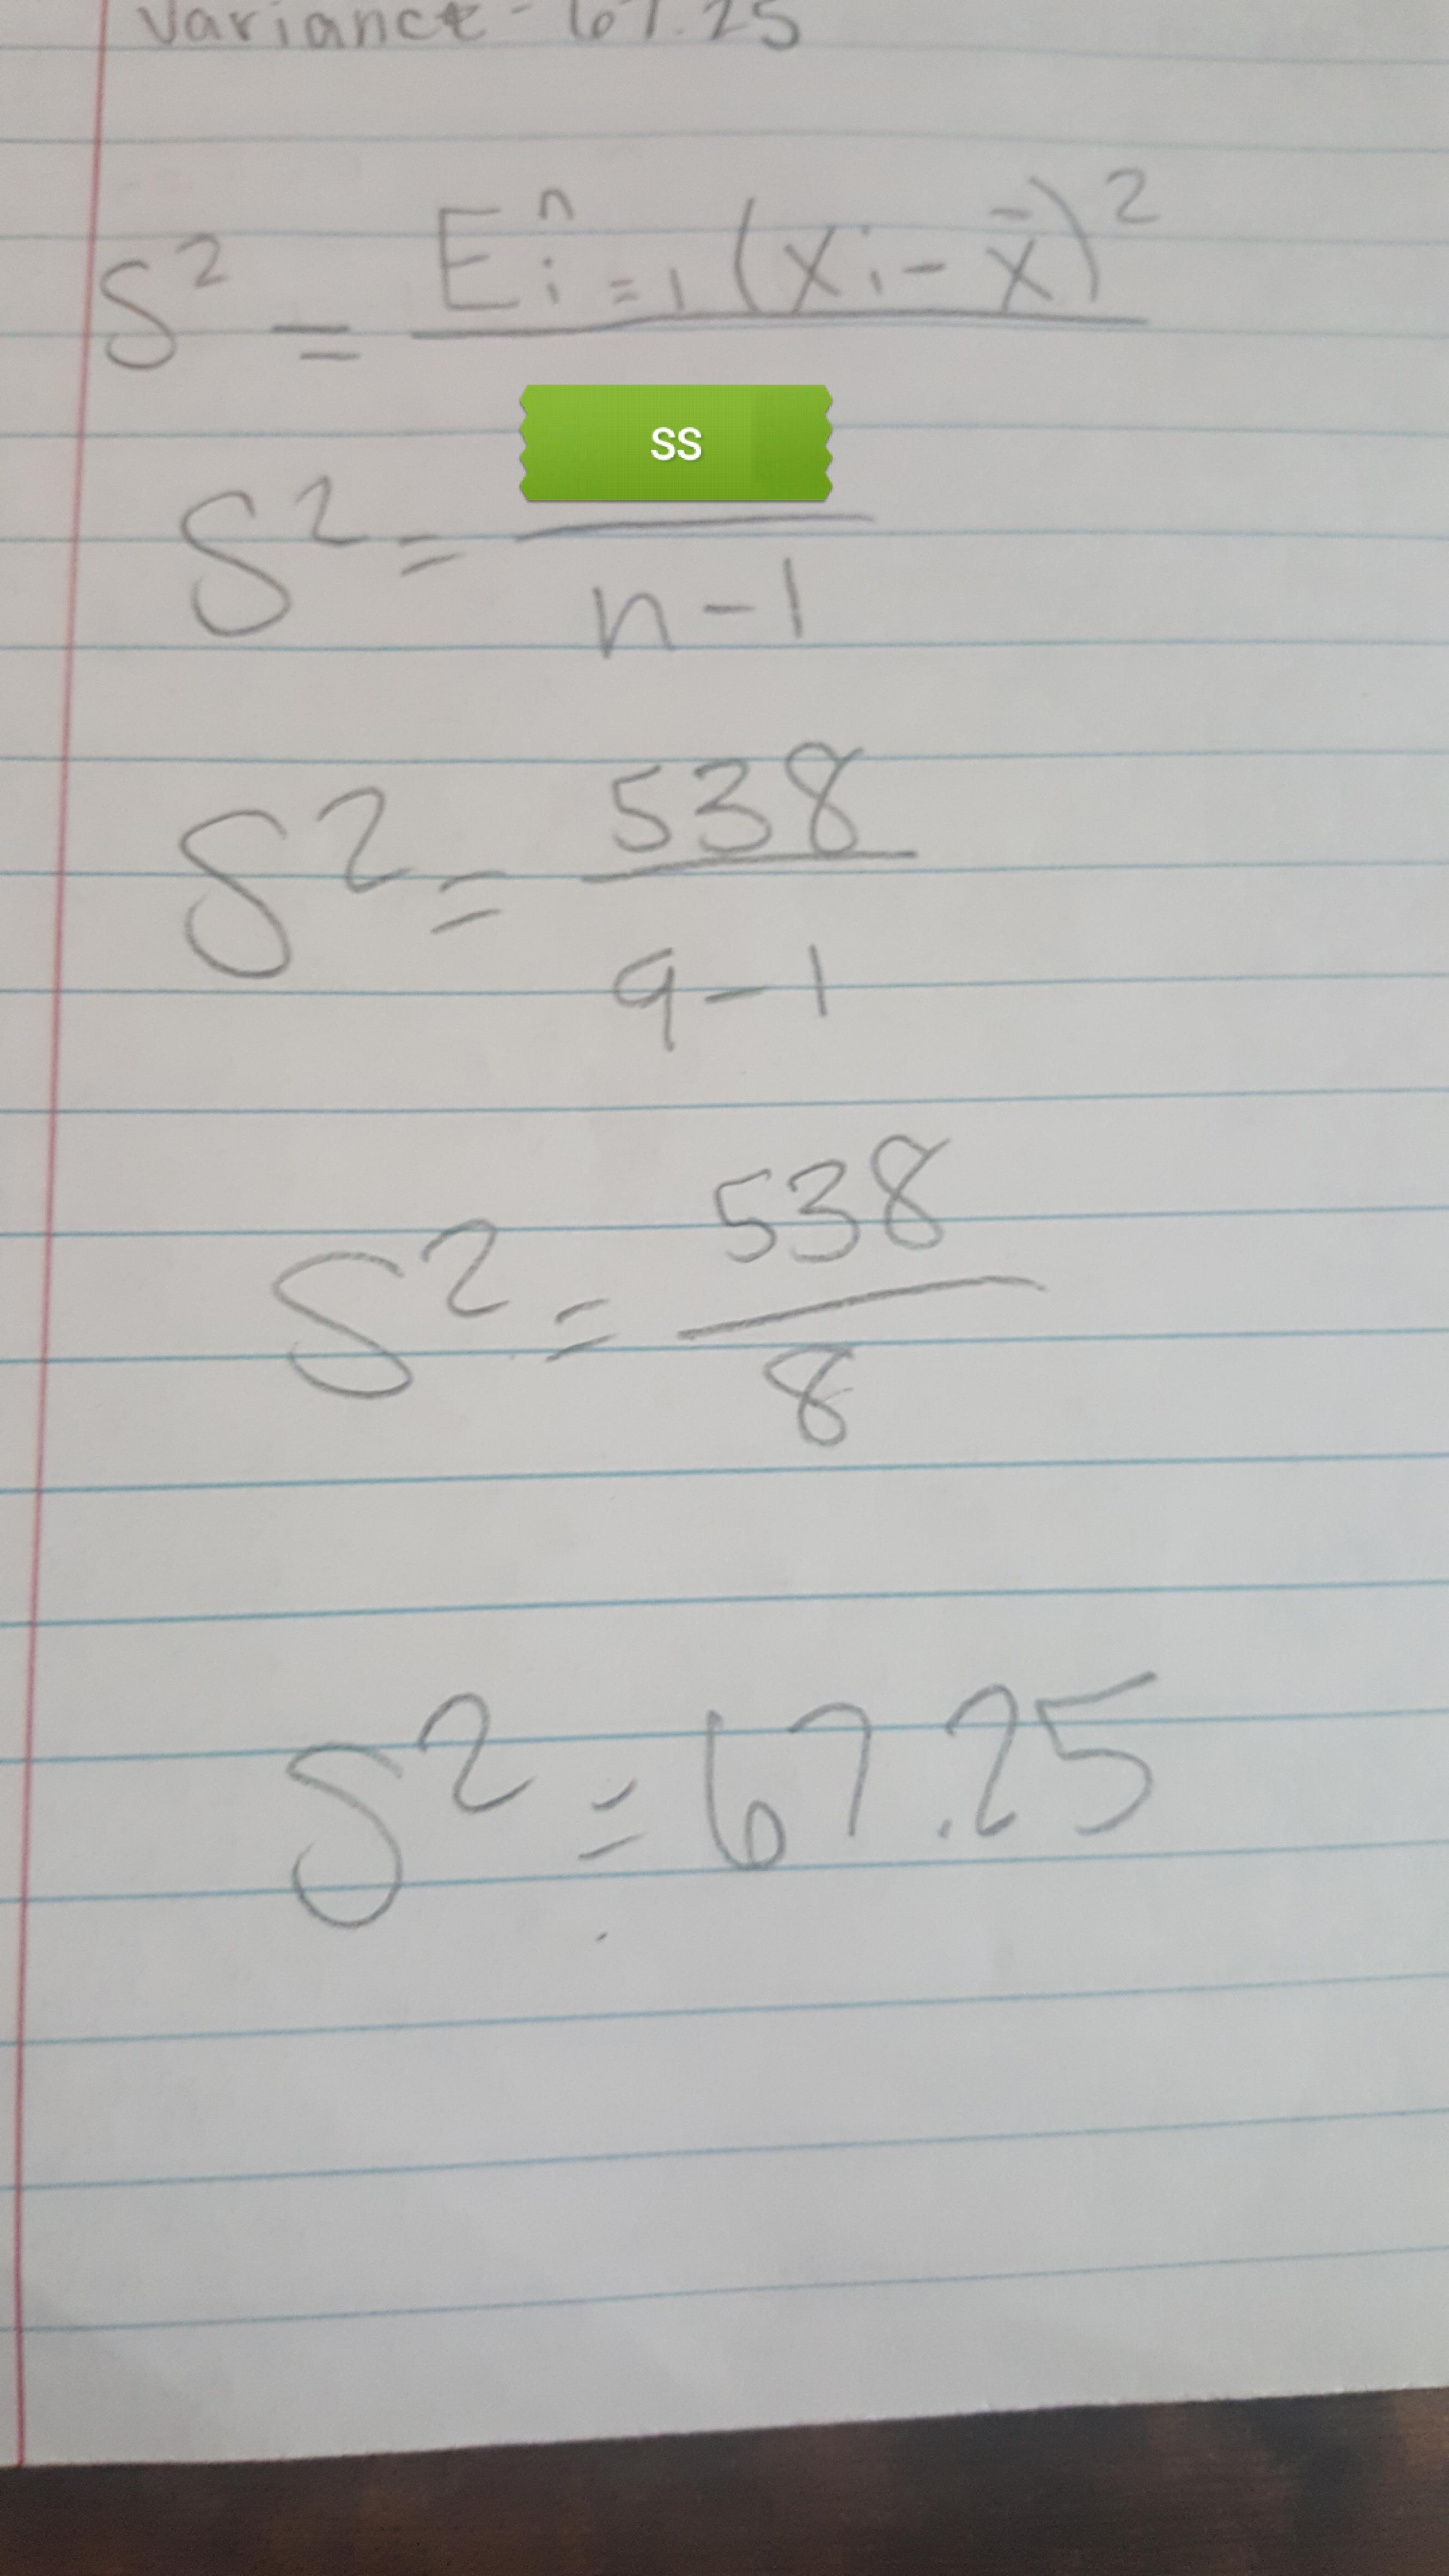 Variance - 67.25
S² = E ⁿ i = 1 (xi - x̄)²
SS
S² = n - 1
S² = 538
9 - 1
S² = 538
8
S² = 67.25